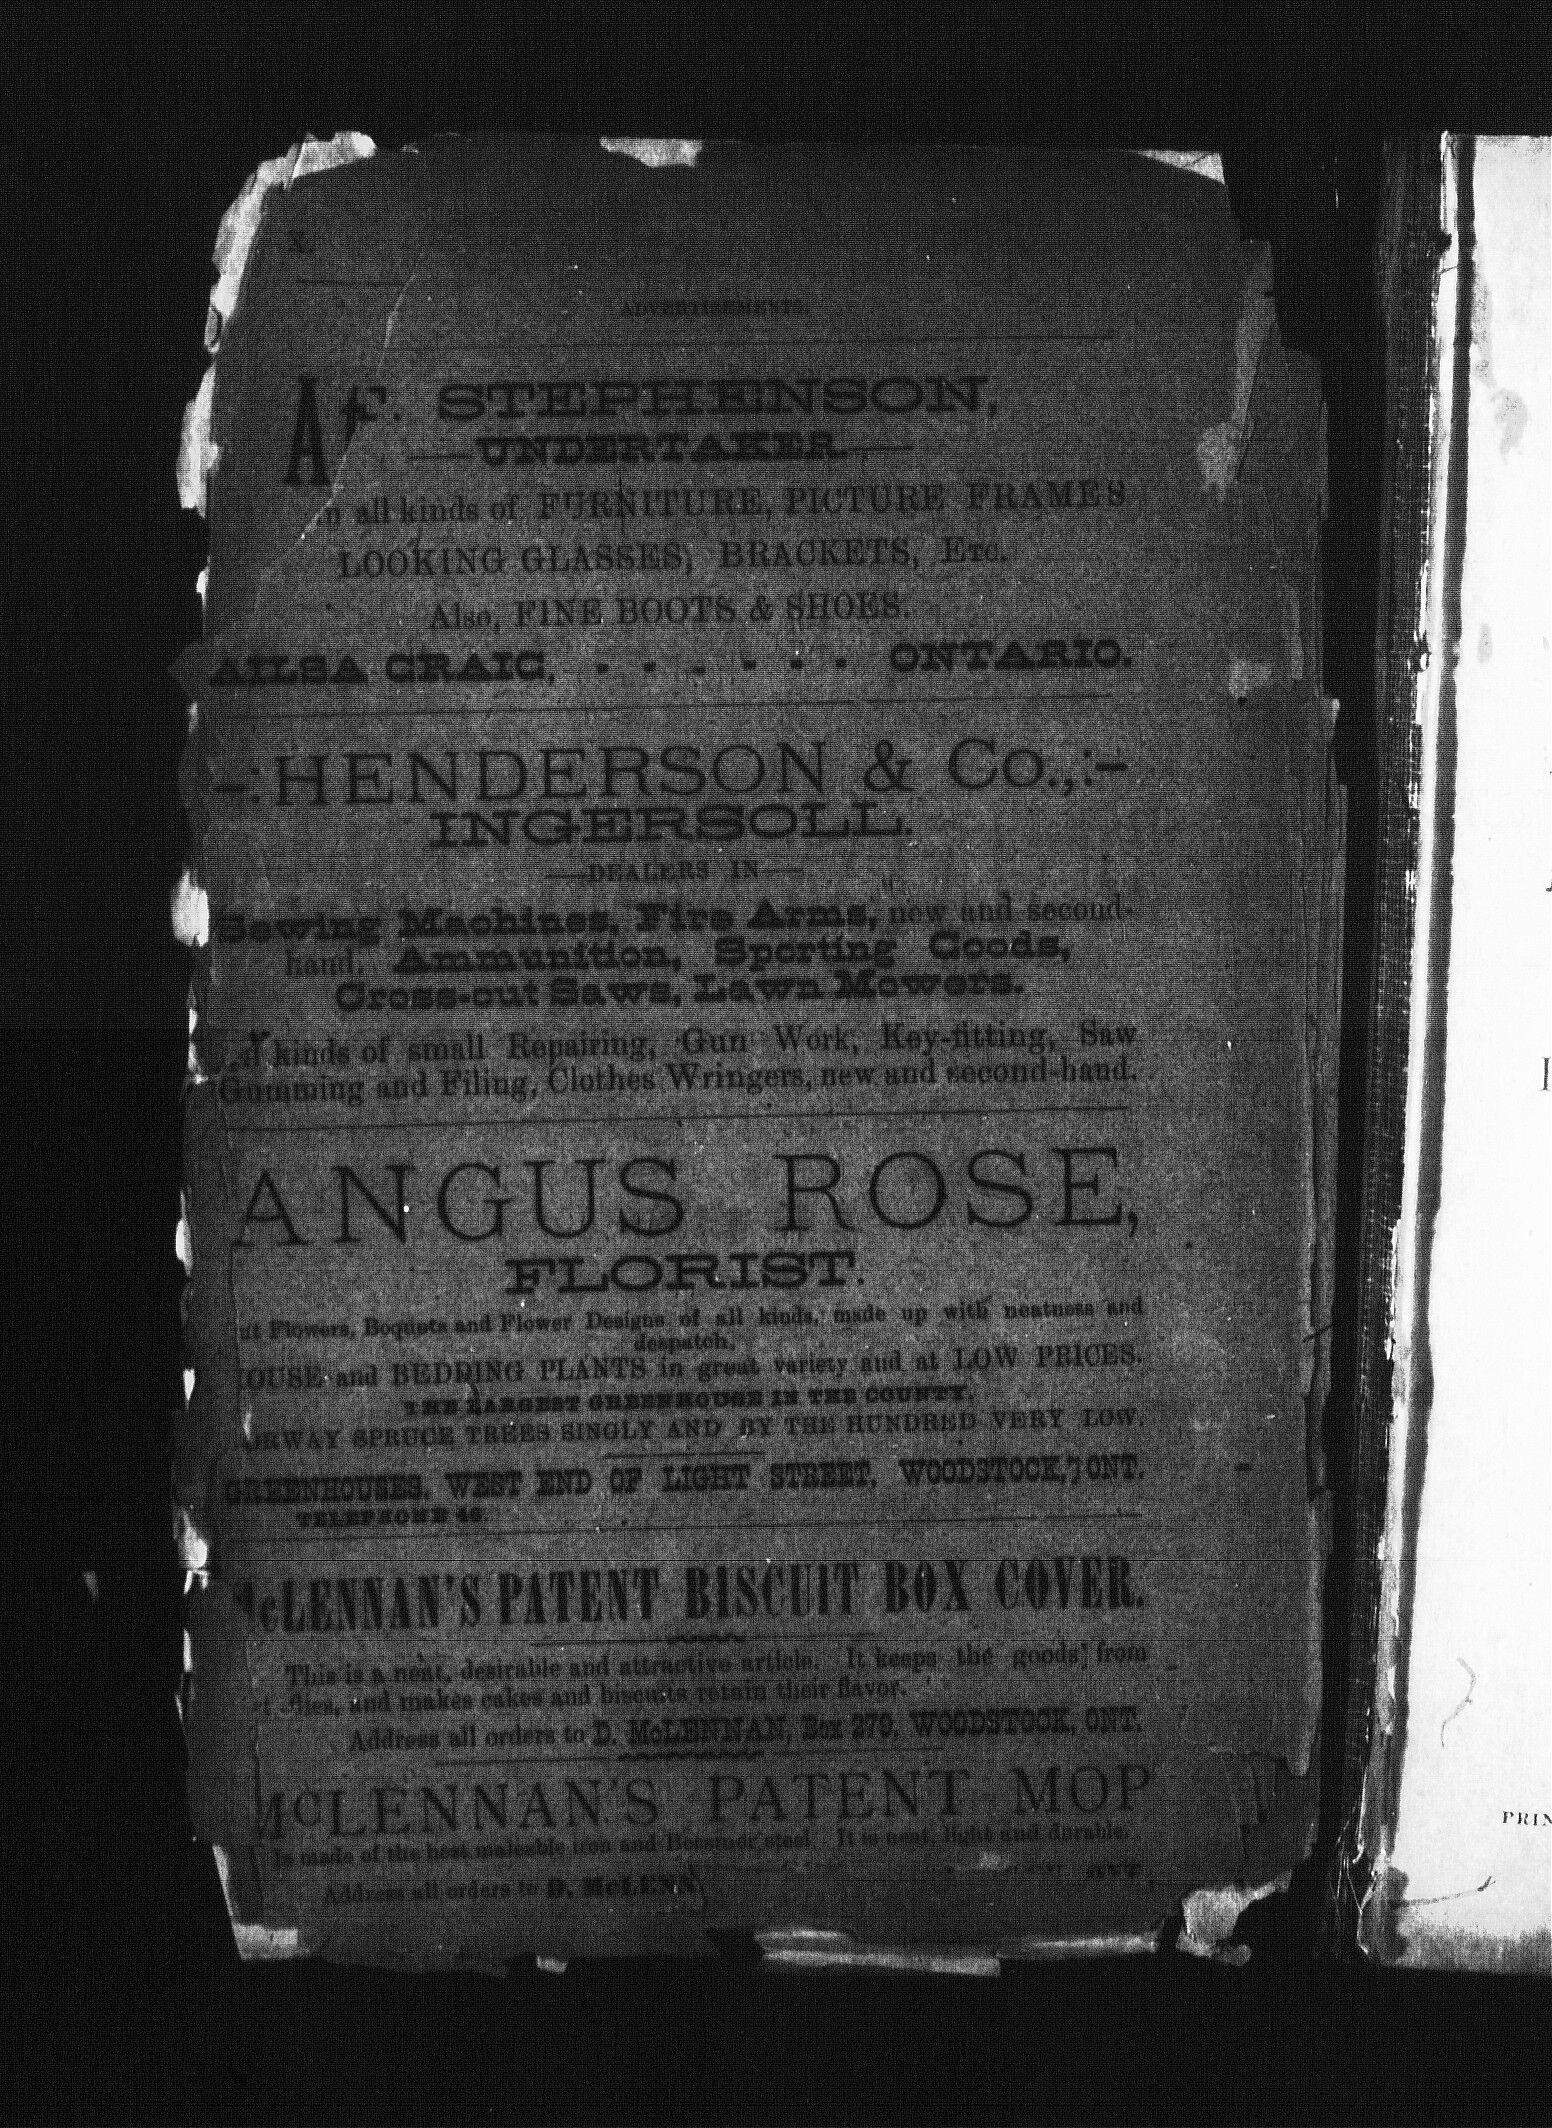 X.
ADVERTISEMENTS.
A F. STEPHENSON,
—UNDERTAKER—
n all kinds of FURNITURE, PICTURE FRAMES
LOOKING GLASSES, BRACKETS, Etc.
Also, FINE BOOTS & SHOES.
AILSA CRAIG, - - - - - - ONTARIO.
-:HENDERSON & Co.,:-
INGERSOLL.
—DEALERS IN—
Sewing Machines, Fire Arms, new and second-
hand, Ammunition, Sporting Goods,
Cross-cut Saws, Lawn Mowers.
kinds of small Repairing, Gun Work, Key-fitting, Saw
Gumming and Filing, Clothes Wringers, new and second-hand.
ANGUS ROSE,
FLORIST.
ut Flowers, Boquets and Flower Designs of all kinds, made up with neatness and
despatch.
OUSE and BEDDING PLANTS in great variety and at LOW PRICES.
THE LARGEST GREENHOUSE IN THE COUNTY.
ORWAY SPRUCE TREES SINGLY AND BY THE HUNDRED VERY LOW.
GREENHOUSES, WEST END OF LIGHT STREET, WOODSTOCK, ONT.
TELEPHONE 46.
McLENNAN'S PATENT BISCUIT BOX COVER.
This is a neat, desirable and attractive article. It keeps the goods from
flies, and makes cakes and biscuits retain their flavor.
Address all orders to D. McLENNAN, Box 279, WOODSTOCK, ONT.
McLENNAN'S PATENT MOP
Is made of the best maleable iron and Bessmer steel. It is neat, light and durable.
Address all orders to D. McLENNA ONT
PRIN